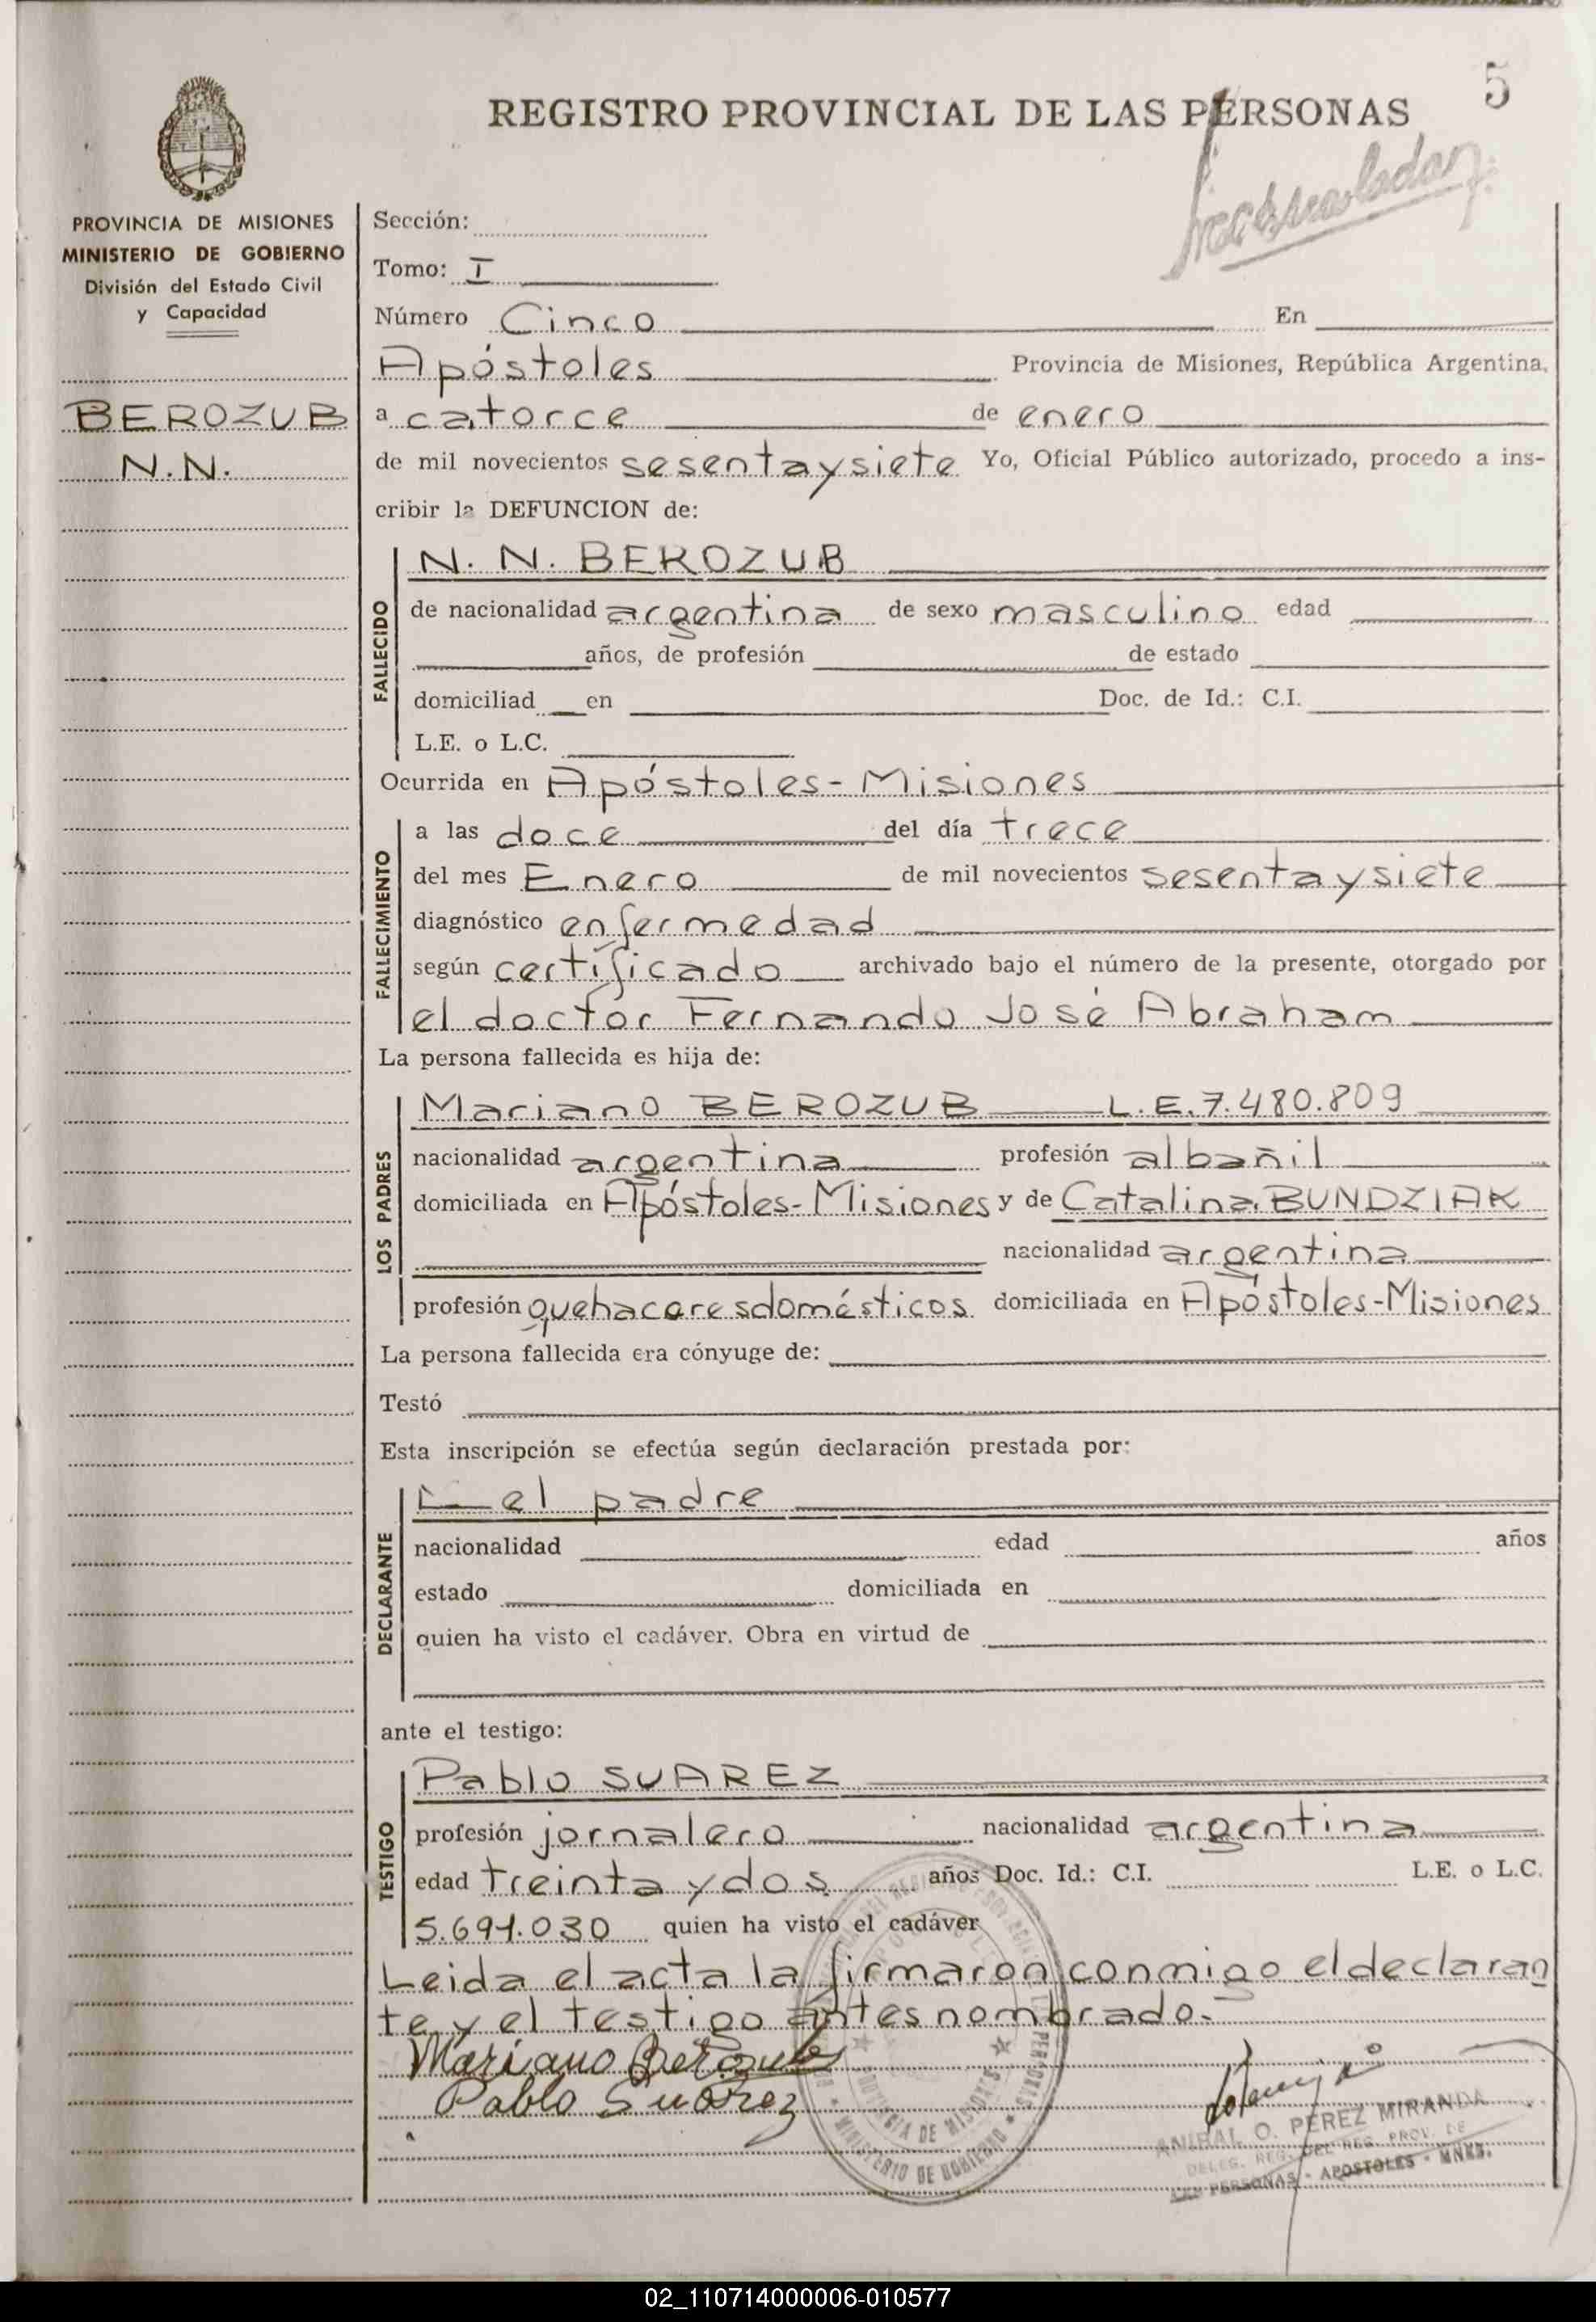 5
REGISTRO PROVINCIAL DE LAS PERSONAS
PROVINCIA DE MISIONES
MINISTERIO DE GOBIERNO
División del Estado Civil
y Capacidad
BEROZUB
N.N.
Sección:
Tomo: I
Número Cinco En
Apóstoles Provincia de Misiones, República Argentina,
a catorce de enero
de mil novecientos sesentaysiete Yo, Oficial Público autorizado, procedo a ins-
cribir la DEFUNCION de:
FALLECIDO
N. N. BEROZUB
de nacionalidad argentina de sexo masculino edad
años, de profesión de estado
domiciliad en Doc. de Id.: C.I.
L.E. o L.C.
Ocurrida en Apóstoles-Misiones
FALLECIMIENTO
a las doce del día trece
del mes Enero de mil novecientos sesentaysiete
diagnóstico enfermedad
según certificado archivado bajo el número de la presente, otorgado por
el doctor Fernando José Abraham
La persona fallecida es hija de:
LOS PADRES
Mariano BEROZUB L.E. 7.480.809
nacionalidad argentina profesión albañil
domiciliada en Apóstoles-Misiones y de Catalina BUNDZIAK
nacionalidad argentina
profesión quehaceresdomésticos domiciliada en Apóstoles-Misiones
La persona fallecida era cónyuge de:
Testó
Esta inscripción se efectúa según declaración prestada por:
DECLARANTE
el padre
nacionalidad edad años
estado domiciliada en
quien ha visto el cadáver. Obra en virtud de
ante el testigo:
TESTIGO
Pablo SUAREZ
profesión jornalero nacionalidad argentina
edad treinta y dos años Doc. Id.: C.I. L.E. o L.C.
5.691.030 quien ha visto el cadáver
Leida el acta la firmaron conmigo el declaran
te y el testigo antes nombrado.-
Mariano Berozub
Pablo Suarez
ANIBAL O. PEREZ MIRANDA
DELEG. REG. DEL REG. PROV. DE
LAS PERSONAS - APOSTOLES - MNES.
PROVINCIA DE MISIONES
MINISTERIO DE GOBIERNO
02_110714000006-010577